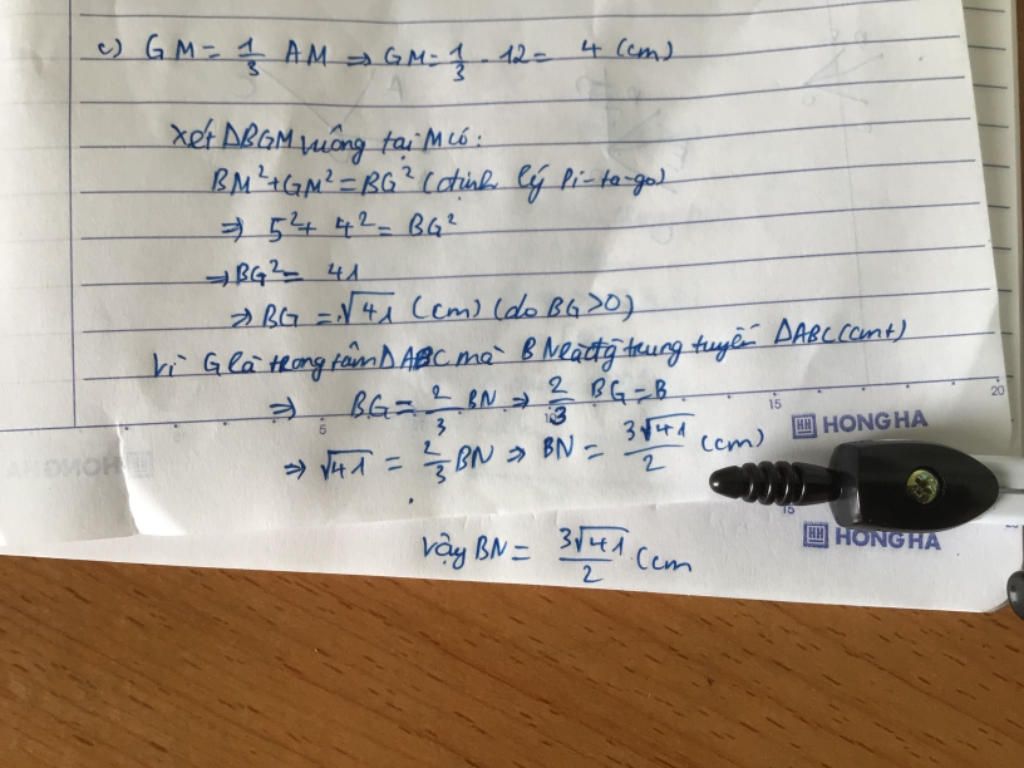 c) GM = 1/3 AM ⇒ GM = 1/3 . 12 = 4 (cm)
Xét ΔBGM vuông tại M có:
BM² + GM² = BG² (định lý Pi-ta-go)
⇒ 5² + 4² = BG²
⇒ BG² = 41
⇒ BG = √41 (cm) (do BG > 0)
Vì G là trọng tâm ΔABC mà BN là trung tuyến ΔABC (cmt)
⇒ BG = 2/3 BN ⇒ 2/3 BG = B
5 15 20
HONG HA
⇒ √41 = 2/3 BN ⇒ BN = 3√41/2 (cm)
15
HONG HA
Vậy BN = 3√41/2 (cm